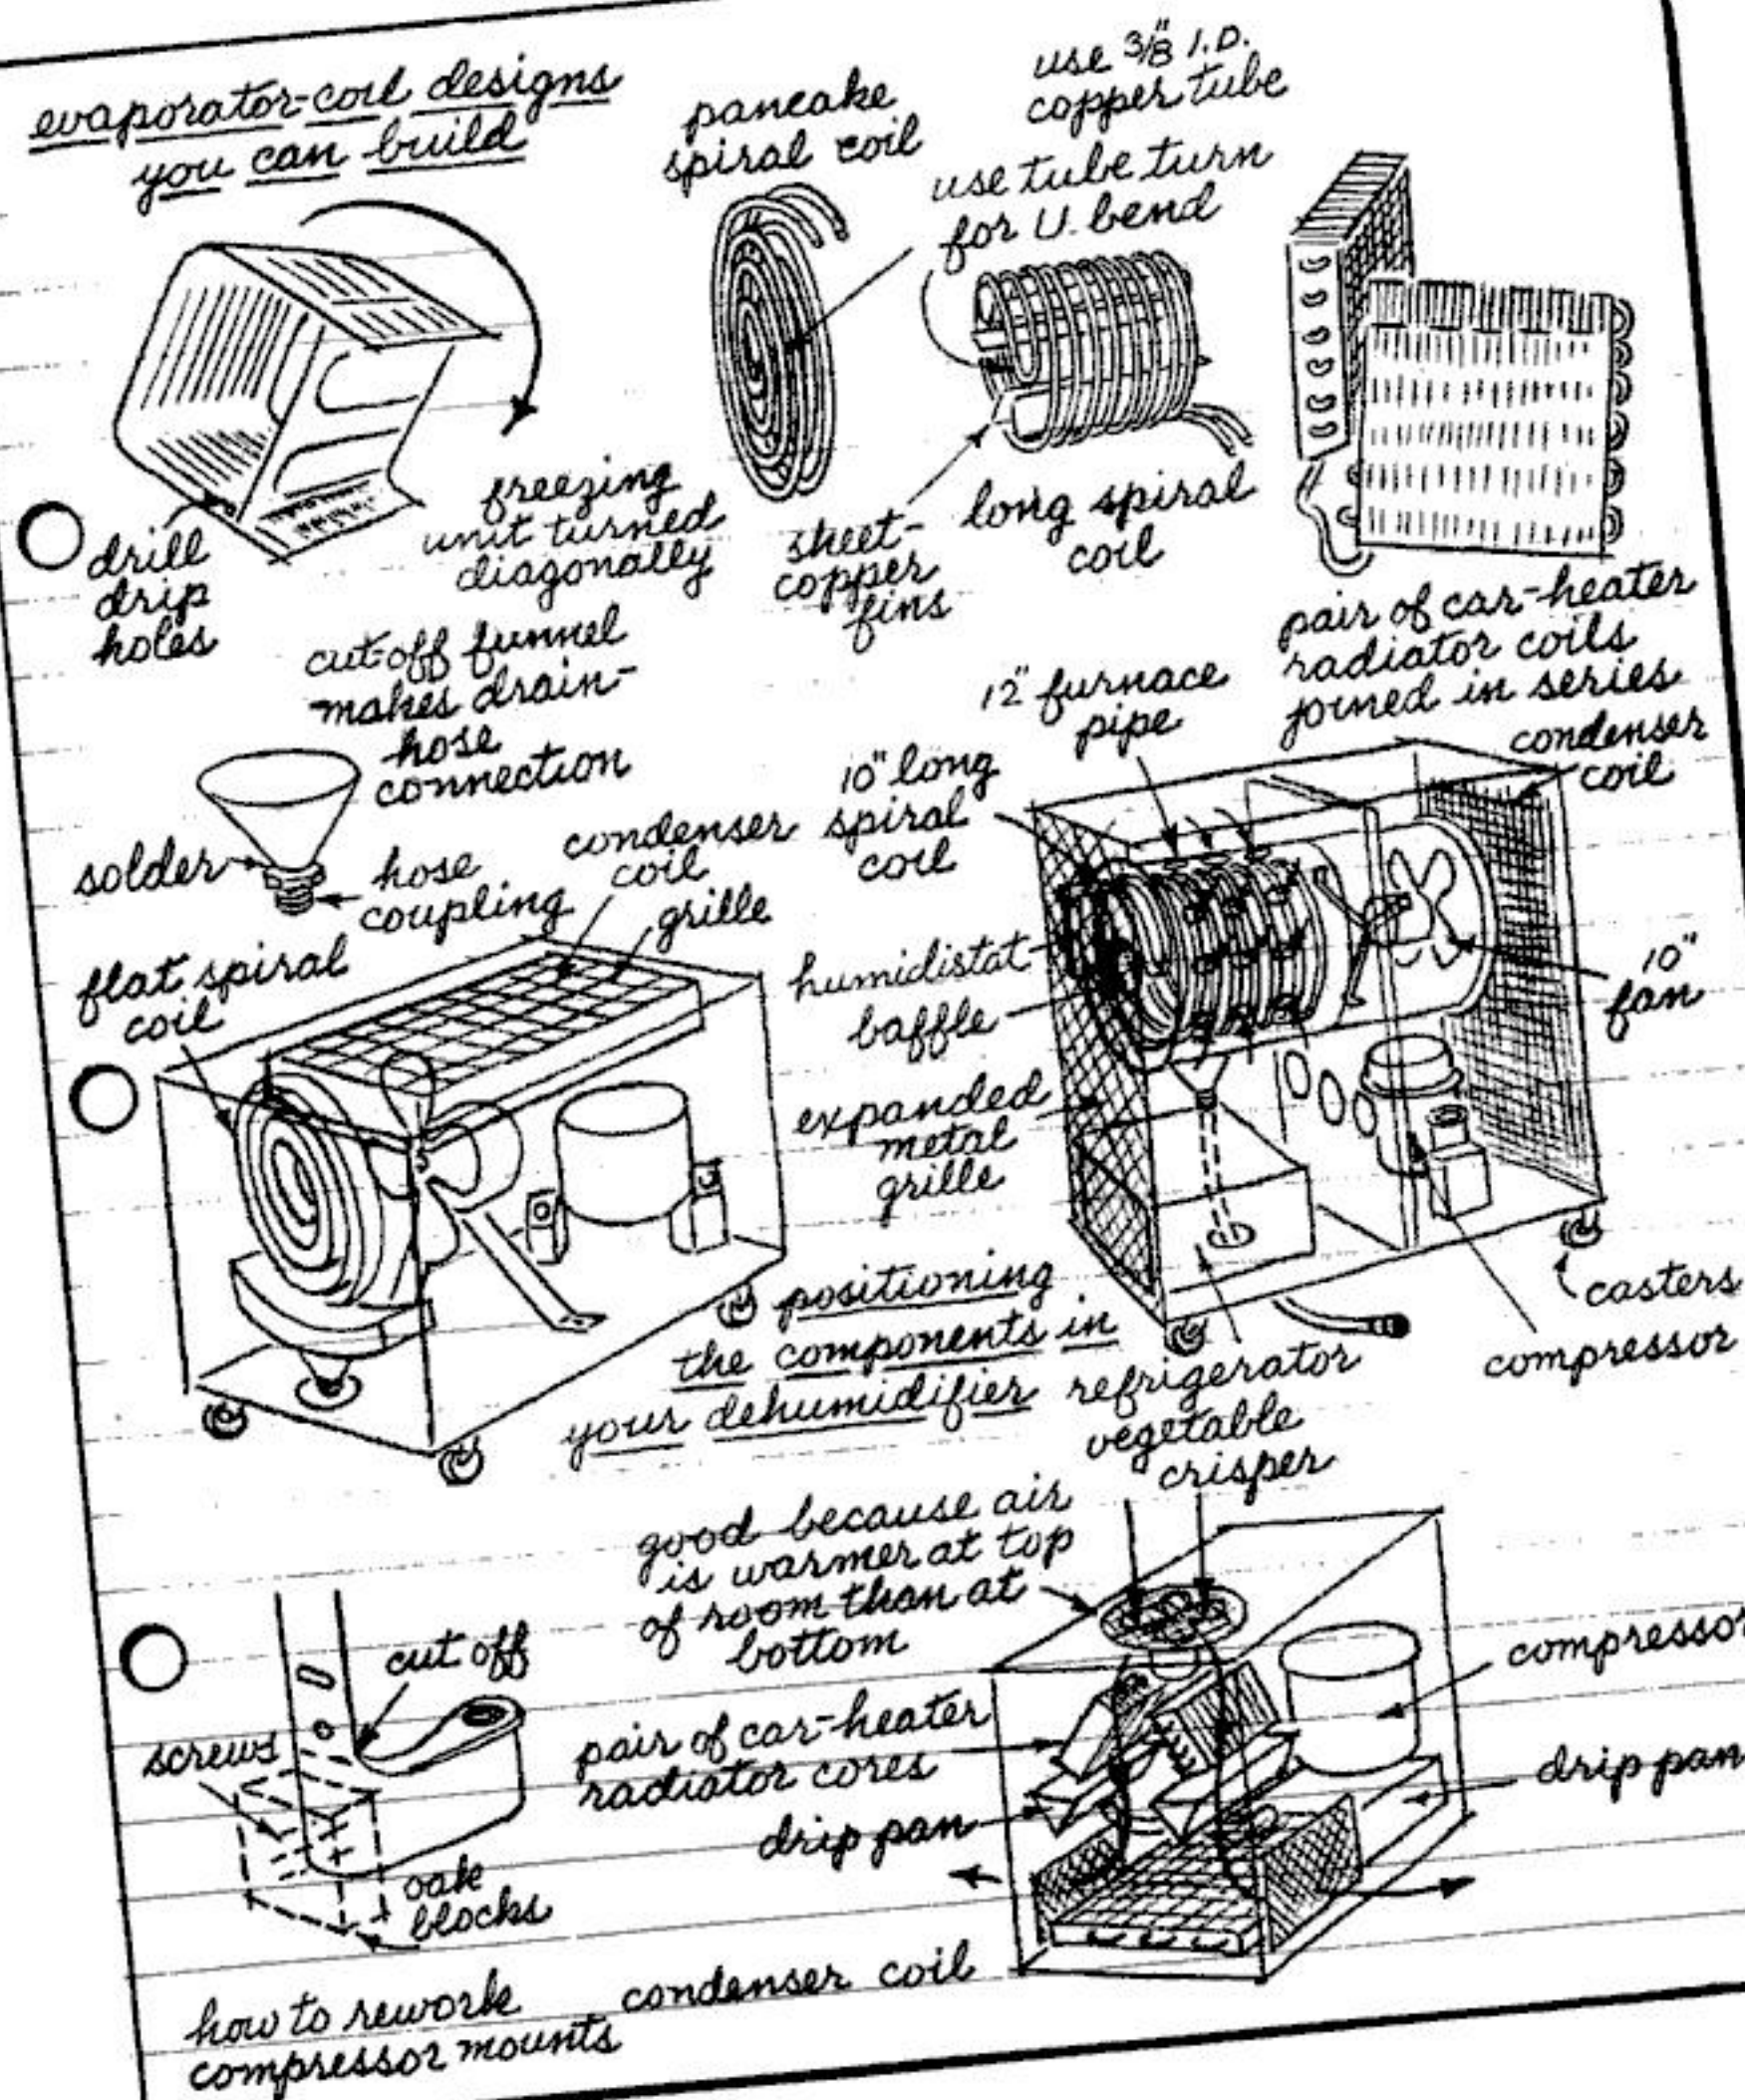 evaporator-coil designs
you can build
pancake
spiral coil
use 3/8 I.D.
copper tube
use tube turn
for U. bend
drill
drip
holes
freezing
unit turned
diagonally
sheet-
copper
fins
long spiral
coil
pair of car-heater
radiator coils
joined in series
cut-off funnel
makes drain-
hose
connection
solder
hose
coupling
condenser
coil
grille
flat spiral
coil
12" furnace
pipe
10" long
spiral
coil
condenser
coil
humidistat
baffle
10"
fan
expanded
metal
grille
casters
compressor
refrigerator
vegetable
crisper
positioning
the components in
your dehumidifier
good because air
is warmer at top
of room than at
bottom
cut off
screws
oak
blocks
how to rework
compressor mounts
pair of car-heater
radiator cores
drip pan
compressor
drip pan
condenser coil